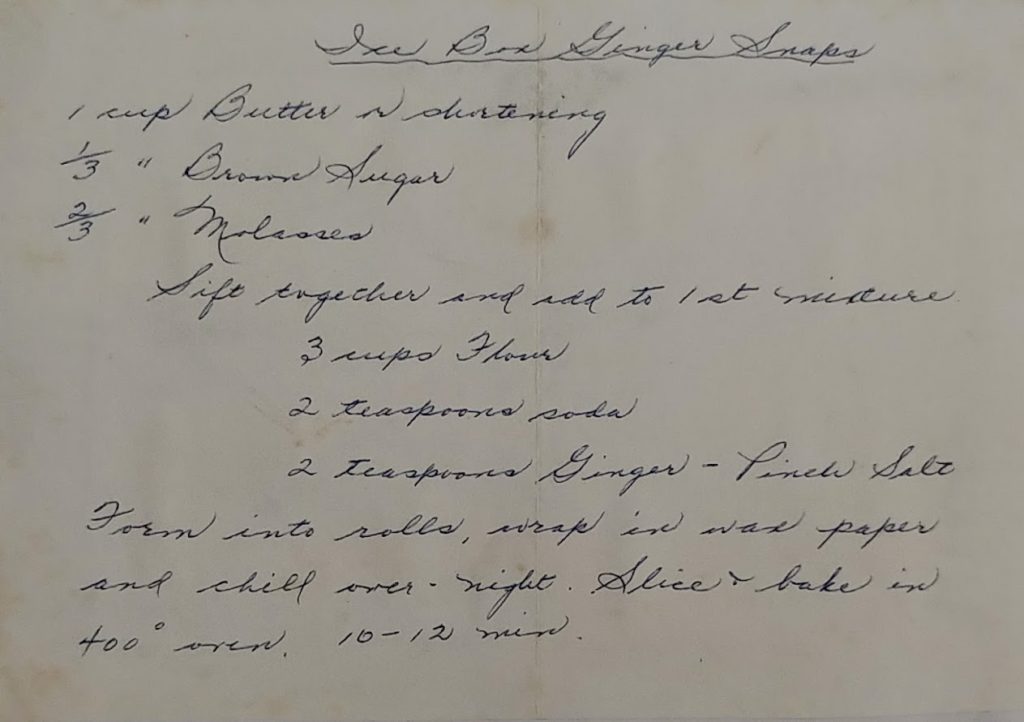 Ice Box Ginger Snaps
1 cup Butter or shortening
1/3 " Brown Sugar
2/3 " Molasses
Sift together and add to 1st mixture
3 cups Flour
2 teaspoons soda
2 teaspoons Ginger - Pinch Salt
Form into rolls, wrap in wax paper
and chill over-night. Slice & bake in
400° oven. 10-12 min.